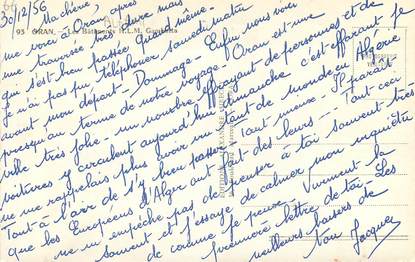 30/12/56
Ma chère,
me voici à Oran après
une traversée très dure mais
qui s'est bien passée quand même.
Je n'ai pas pu téléphoner samedi matin
avant mon départ - Dommage - Enfin nous voici
presqu'au terme de notre voyage. Oran est une
ville très jolie - un nombre effrayant de personnes et de
voitures y circulent aujourd'hui dimanche c'est effarant je
ne me rappelais plus avoir vu tant de monde en Algérie
Tout a l'air de s'y bien passer. Tant mieux. Il paraît
que les Européens d'Alger ont fait des leurs -- Tout ceci
ne m'empêche pas de penser à toi souvent très
souvent et j'essaye de calmer mon inquiétude
de comme je peux. Vivement la
première lettre de toi. Les
meilleurs baisers de
ton Jacques
95 ORAN - Les Bâtiments H.L.M. Gambetta